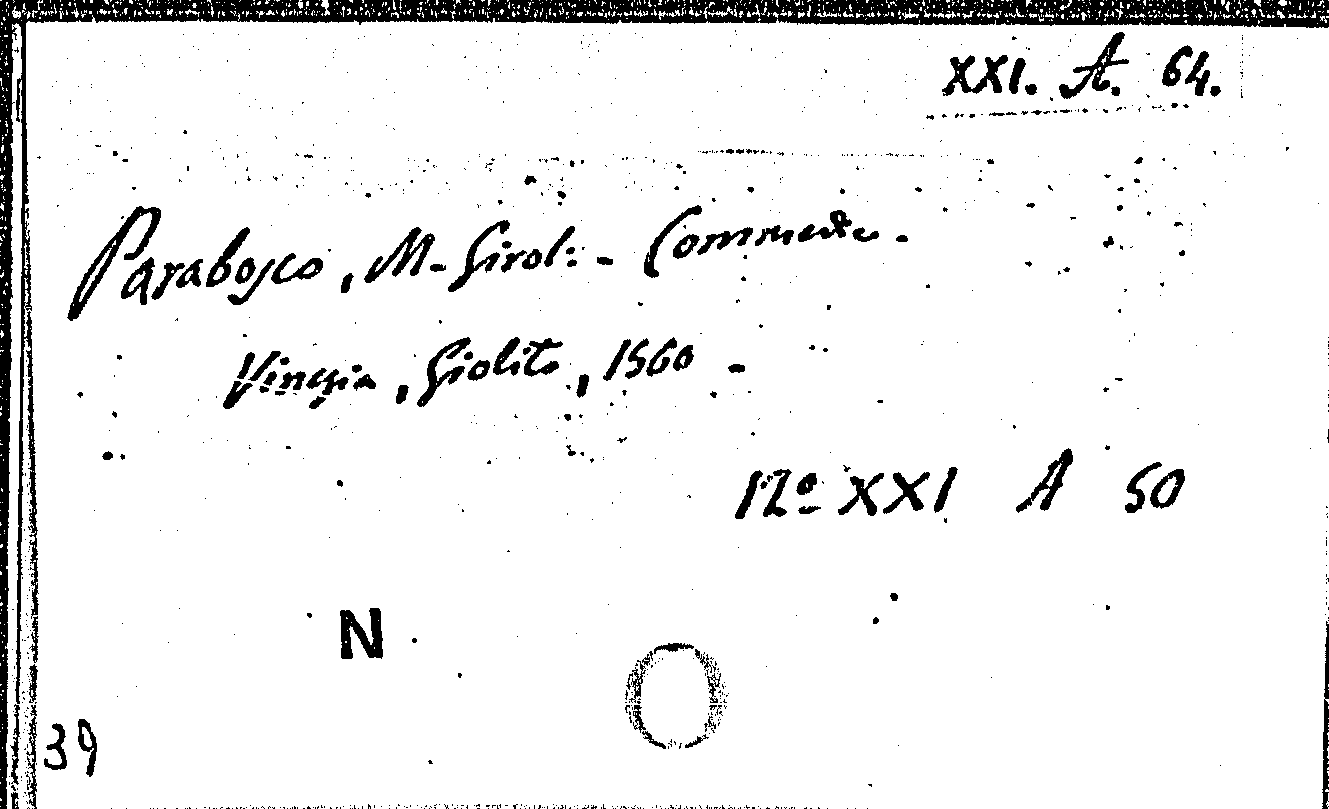 XXI. A. 64.
Parabosco, M. Girol: - Commedie.
Vinegia, Giolito, 1560 -
12º XXI A 50
N
39